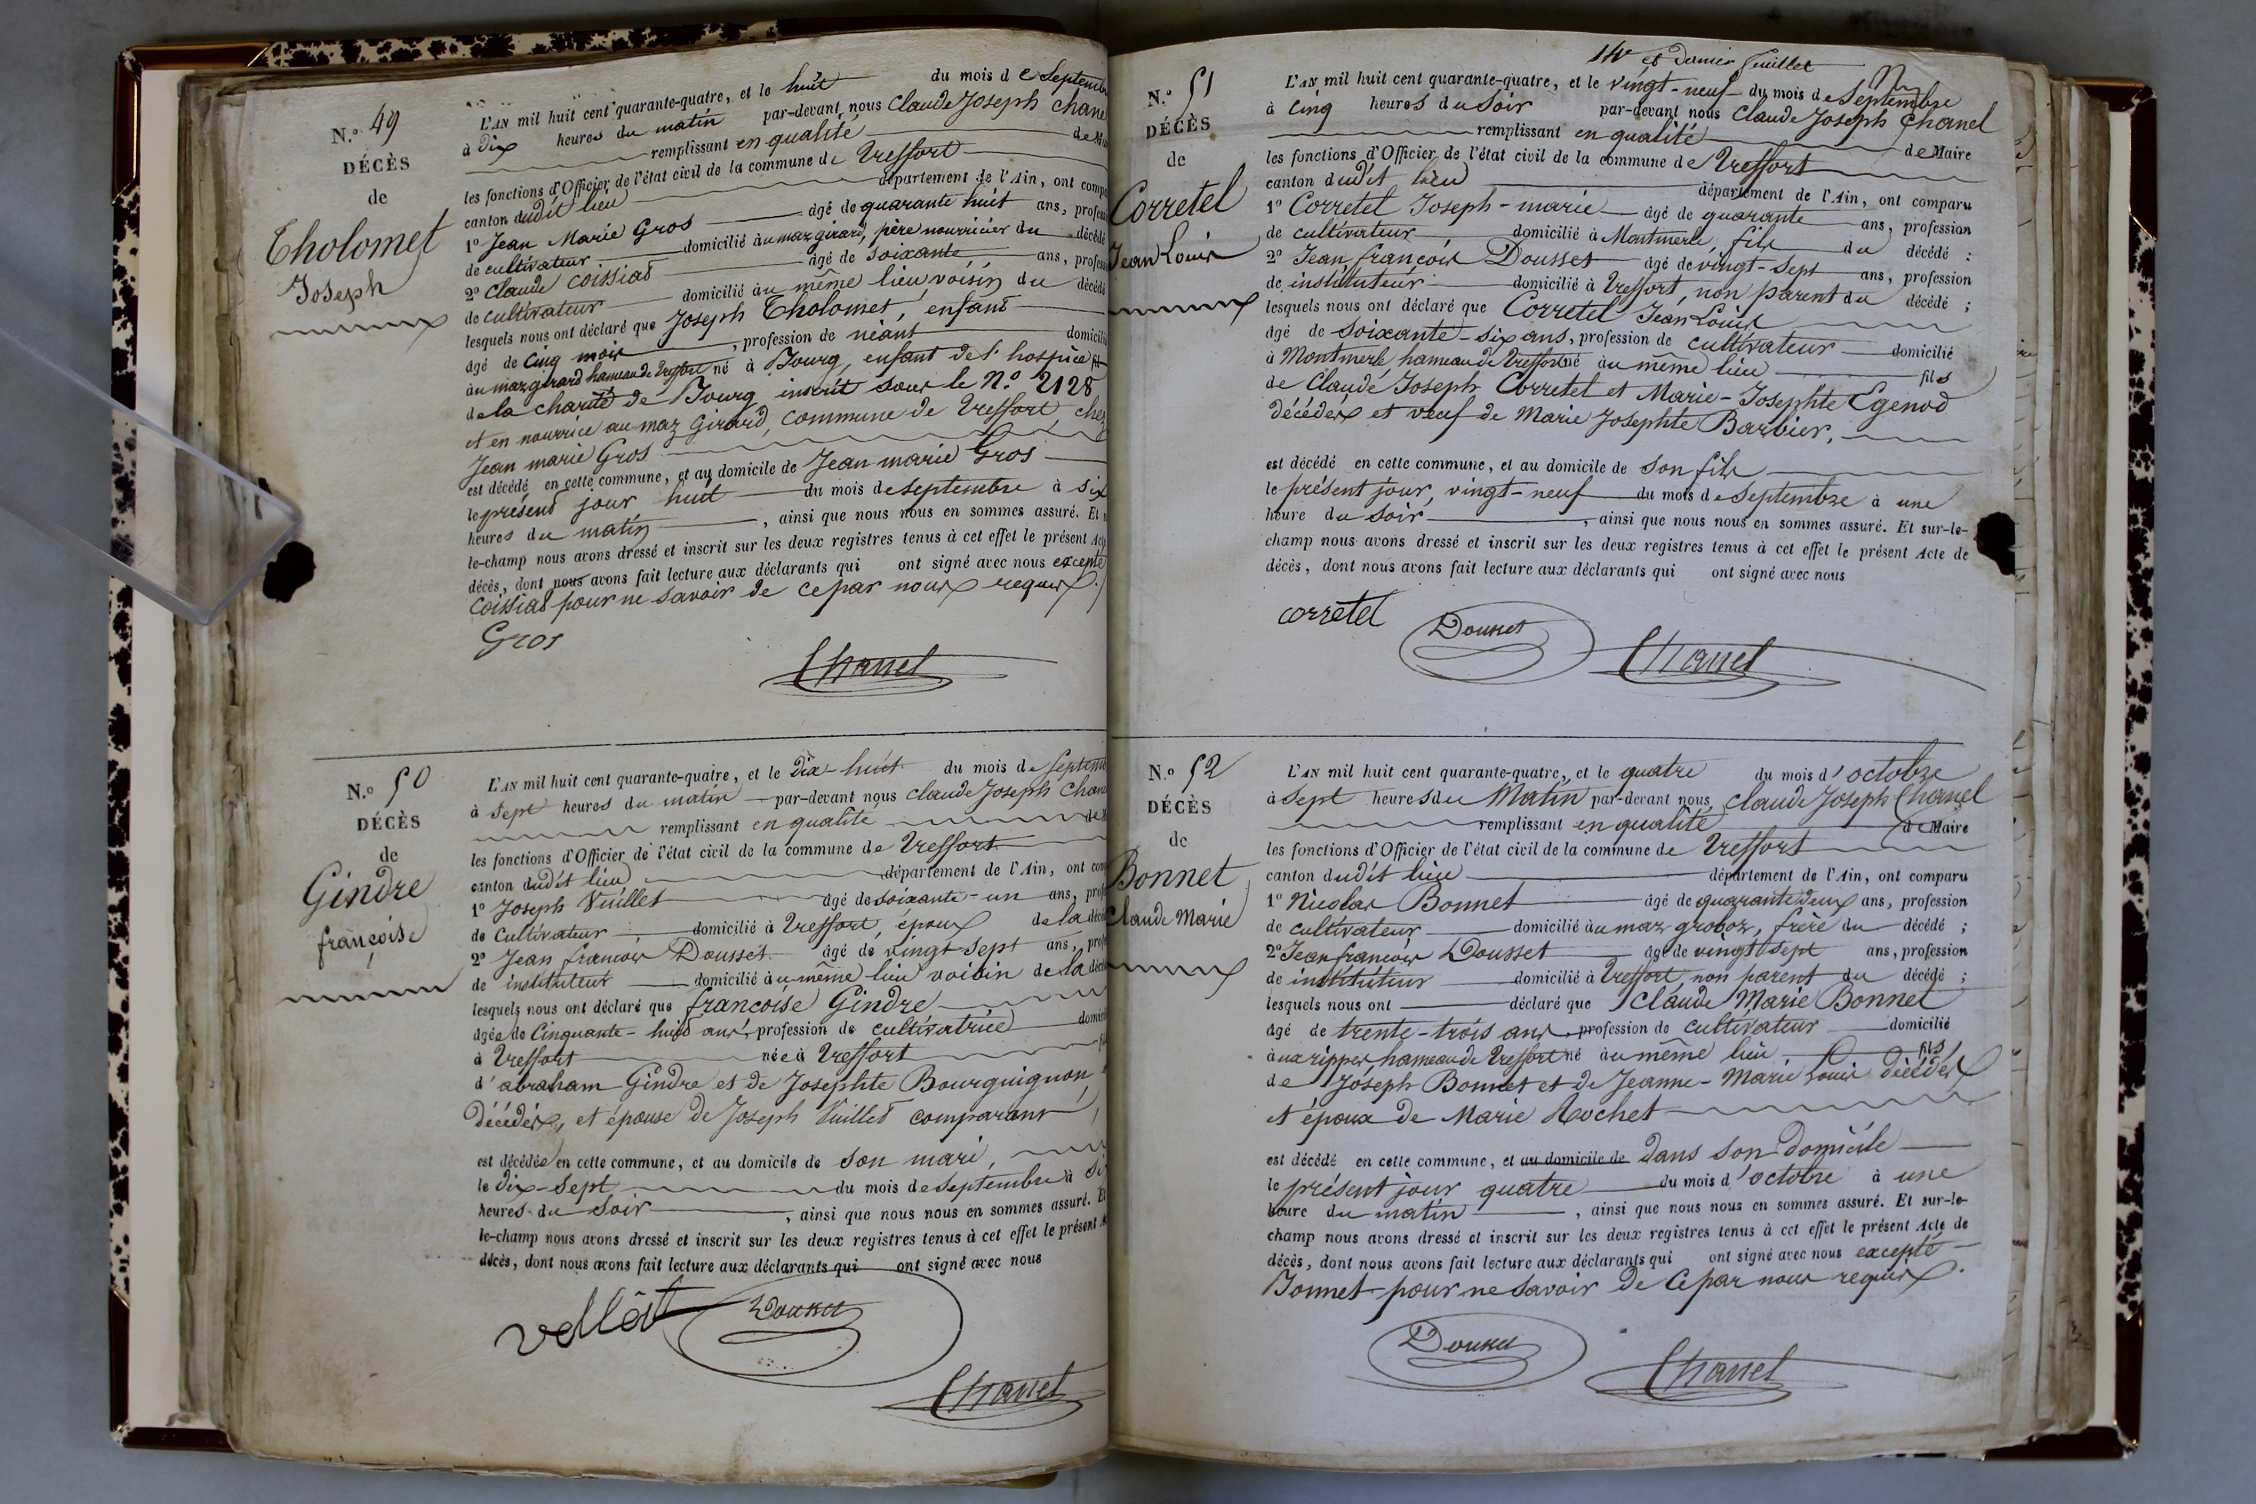 N.° 49
DÉCÈS
de
Tholomet
Joseph
L'AN mil huit cent quarante-quatre, et le huit du mois de Septemb
à dix heures du matin par-devant nous Claude Joseph Chan
remplissant en qualité de M
les fonctions d'Officier de l'état civil de la commune de Treffort
canton dudit lieu département de l'Ain, ont comp
1° Jean Marie Gros âgé de quarante huit ans, profess
de cultivateur domicilié au maz girard, père nourricier du décédé
2° Claude Coissiat âgé de soixante ans, profess
de cultivateur domicilié au même lieu, voisin du décédé
lesquels nous ont déclaré que Joseph Tholomet, enfant
âgé de cinq mois, profession de néant domicilié
au maz girard hameau de Treffort né à Bourg, enfant de l'hospice
de la charité de Bourg inscrit sous le N.° 2128
et en nourrice au maz Girard, commune de Treffort, chez
Jean marie Gros
est décédé en cette commune, et au domicile de Jean marie Gros
le présent jour huit du mois de septembre à six
heures du matin, ainsi que nous nous en sommes assuré. Et
le-champ nous avons dressé et inscrit sur les deux registres tenus à cet effet le présent Acte
décès, dont nous avons fait lecture aux déclarants qui ont signé avec nous excepté
Coissiat pour ne savoir de ce par nous requis.
Gros
Chanel
N.° 50
DÉCÈS
de
Gindre
françoise
L'AN mil huit cent quarante-quatre, et le dix-huit du mois de Septem
à Sept heures du matin par-devant nous Claude Joseph Chan
remplissant en qualité de
les fonctions d'Officier de l'état civil de la commune de Treffort
canton dudit lieu département de l'Ain, ont com
1° Joseph Vuillet âgé de soixante-un ans, prof
de cultivateur domicilié à Treffort, époux de la décé
2° Jean françois Dousset âgé de vingt sept ans, prof
de instituteur domicilié au même lieu voisin de la décé
lesquels nous ont déclaré que françoise Gindre
âgée de Cinquante-huit ans, profession de cultivatrice domici
à Treffort née à Treffort
d'abraham Gindre et de Josephte Bourguignon
décédés, et épouse de Joseph Vuillet comparant,
est décédée en cette commune, et au domicile de son mari,
le dix-sept du mois de septembre à
heures du soir, ainsi que nous nous en sommes assuré. Et
le-champ nous avons dressé et inscrit sur les deux registres tenus à cet effet le présent
décès, dont nous avons fait lecture aux déclarants qui ont signé avec nous
Dousset
Chanel
14e et dernier feuillet
N.° 51
DÉCÈS
de
Corretel
Jean Louis
L'AN mil huit cent quarante-quatre, et le vingt-neuf du mois de Septembre
à cinq heures du soir par-devant nous Claude Joseph Chanel
remplissant en qualité de Maire
les fonctions d'Officier de l'état civil de la commune de Treffort
canton dudit lieu département de l'Ain, ont comparu
1° Corretel Joseph-marie âgé de quarante ans, profession
de cultivateur domicilié à Montmerle, fils du décédé :
2° Jean françois Dousset âgé de vingt-sept ans, profession
de instituteur domicilié à Treffort, non parent du décédé ;
lesquels nous ont déclaré que Corretel Jean Louis
âgé de soixante-six ans, profession de cultivateur domicilié
à Montmerle, hameau de Treffort né au même lieu fils
de Claude Joseph Corretel et Marie-Josephte Egenod
décédés et veuf de Marie Josephte Barbier,
est décédé en cette commune, et au domicile de son fils
le présent jour, vingt-neuf du mois de septembre à une
heure du soir, ainsi que nous nous en sommes assuré. Et sur-le-
champ nous avons dressé et inscrit sur les deux registres tenus à cet effet le présent Acte de
décès, dont nous avons fait lecture aux déclarants qui ont signé avec nous
corretel
Dousset
Chanel
N.° 52
DÉCÈS
de
Bonnet
Claude Marie
L'AN mil huit cent quarante-quatre, et le quatre du mois d'octobre
à sept heures du Matin par-devant nous Claude Joseph Chanel
remplissant en qualité de Maire
les fonctions d'Officier de l'état civil de la commune de Treffort
canton dudit lieu département de l'Ain, ont comparu
1° Nicolas Bonnet âgé de quarante deux ans, profession
de cultivateur domicilié au maz groboz, frère du décédé ;
2° Jean françois Dousset âgé de vingt sept ans, profession
de instituteur domicilié à Treffort, non parent du décédé ;
lesquels nous ont déclaré que Claude Marie Bonnet
âgé de trente-trois ans profession de cultivateur domicilié
aux rippes hameau de Treffort né au même lieu, fils
de Joseph Bonnet et de Jeanne-Marie Louis décédés
et époux de Marie Rochet
est décédé en cette commune, et au domicile de dans son domicile
le présent jour quatre du mois d'octobre à une
heure du matin, ainsi que nous nous en sommes assuré. Et sur-le-
champ nous avons dressé et inscrit sur les deux registres tenus à cet effet le présent Acte de
décès, dont nous avons fait lecture aux déclarants qui ont signé avec nous excepté
Bonnet pour ne savoir de ce par nous requis.
Dousset
Chanel